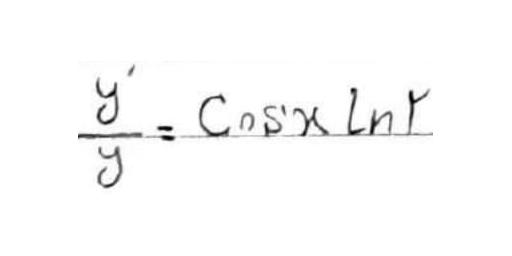 y'/y = Cosx Ln۲